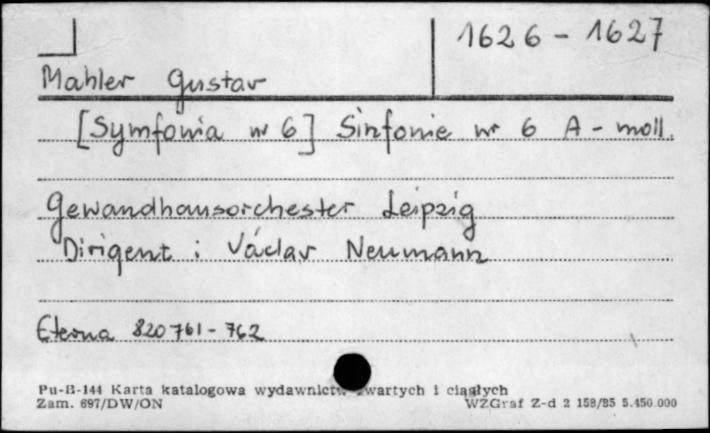 1626 - 1627
Mahler Gustav
[Symfonia nr 6] Sinfonie nr 6 A-moll.
Gewandhausorchester Leipzig
Dirigent : Václav Neumann
Eterna 820 761 - 762
Pu-B-144 Karta katalogowa wydawnictw zwartych i ciągłych
Zam. 697/DW/ON WZGraf Z-d 2 158/85 5.450.000